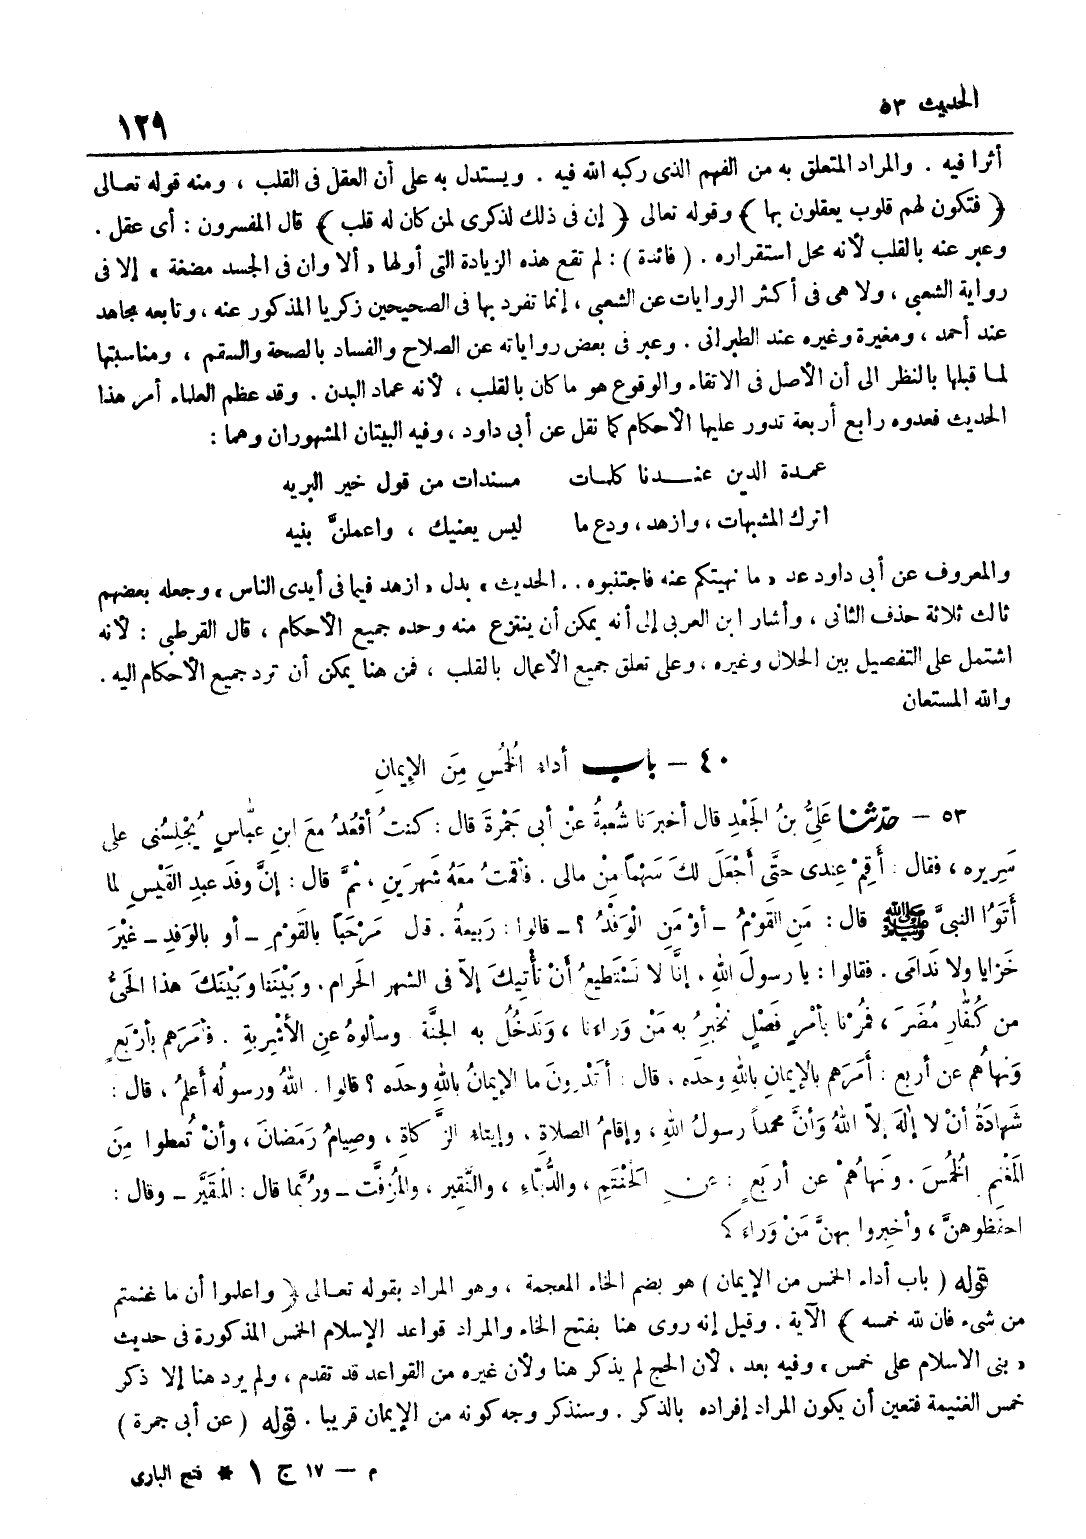 الحديث ٥٣
١٢٩
أثرا فيه . والمراد المتعلق به من الفهم الذى ركبه الله فيه . ويستدل به على أن العقل فى القلب ، ومنه قوله تعالى
﴿ فتكون لهم قلوب يعقلون بها ﴾ وقوله تعالى ﴿ إن فى ذلك لذكرى لمن كان له قلب ﴾ قال المفسرون : أى عقل .
وعبر عنه بالقلب لأنه محل استقراره . ( فائدة ) : لم تقع هذه الزيادة التى أولها « ألا وان فى الجسد مضغة » إلا فى
رواية الشعبى ، ولا هى فى أكثر الروايات عن الشعبى ، إنما تفرد بها فى الصحيحين زكريا المذكور عنه ، وتابعه مجاهد
عند أحمد ، ومغيرة وغيره عند الطبرانى . وعبر فى بعض رواياته عن الصلاح والفساد بالصحة والسقم ، ومناسبتها
لما قبلها بالنظر الى أن الأصل فى الاتقاء والوقوع هو ما كان بالقلب ، لأنه عماد البدن . وقد عظم العلماء أمر هذا
الحديث فعدوه رابع أربعة تدور عليها الأحكام كما نقل عن أبى داود ، وفيه البيتان المشهوران وهما :
عمدة الدين عنـــدنا كلمات مسندات من قول خير البريه
اترك المشبهات ، وازهد ، ودع ما ليس يعنيك ، واعملنَّ بنيه
والمعروف عن أبى داود عد « ما نهيتكم عنه فاجتنبوه . . الحديث » بدل « ازهد فيما فى أيدى الناس » وجعله بعضهم
ثالث ثلاثة حذف الثانى ، وأشار ابن العربى إلى أنه يمكن أن ينتزع منه وحده جميع الأحكام ، قال القرطبى : لأنه
اشتمل على التفصيل بين الحلال وغيره ، وعلى تعلق جميع الأعمال بالقلب ، فمن هنا يمكن أن ترد جميع الأحكام اليه .
والله المستعان
٤٠ – باب أداءِ الخُمُسِ مِنَ الإيمانِ
٥٣ – حدّثنا عَلىُّ بنُ الجَعْدِ قال أخبرَنا شُعبةُ عنْ أبى جَمْرةَ قال : كنتُ أقعُدُ معَ ابنِ عبّاسٍ يُجْلِسُنى على
سَريرِه ، فقال : أَقِمْ عِندى حتَّى أَجْعَلَ لكَ سَهْماً مِنْ مالى . فأقمتُ معَهُ شَهرَينِ ، ثمَّ قال : إنَّ وفدَ عبدِ القَيْسِ لما
أَتَوُا النبىَّ ﷺ قال : مَنِ القَوْمُ – أوْ مَنِ الوَفْدُ ؟ – قالوا : رَبيعةُ . قل مَرْحَباً بالقَوْمِ – أو بالوَفدِ – غيْرَ
خَزايا ولا نَدامَى . فقالوا : يا رسولَ اللهِ ، إنَّا لا نَسْتَطيعُ أنْ نَأْتِيكَ إلاّ فى الشهر الحَرام ، وبَيْنَنا وبَيْنَكَ هذا الحَىُّ
من كُفّارِ مُضَرَ ، فمُرْنا بأَمْرٍ فَصْلٍ نُخْبِرُ به مَنْ وراءَنا ، ونَدخُلُ به الجَنَّة وسألوهُ عنِ الأشْرِبةِ . فأمَرَهم بأرْبَعٍ
ونهاهُم عن أربعٍ : أمَرَهم بالإيمانِ باللهِ وحدَه ، قال : أتَدْرونَ ما الإيمانُ باللهِ وحدَه ؟ قالوا . اللهُ ورسولُه أعلمُ ، قال :
شَهادَةُ أنْ لا إلهَ إلاّ اللهُ وأنَّ محمداً رسولُ اللهِ ، وإقامُ الصلاةِ ، وإيتاءُ الزَّكاةِ ، وصِيامُ رَمَضانَ ، وأنْ تُعطوا مِنَ
المَغنمِ الخُمُسَ . ونَهاهُمْ عن أربَعٍ : عنِ الحَنْتَمِ ، والدُّبّاءِ ، والنَّقيرِ ، والمُزفَّت – ورُبَّما قال : المُقَيَّر – وقال :
احفَظوهنَّ ، وأخبِروا بهنَّ مَنْ وراءَكم
قوله ( باب أداء الخمس من الإيمان ) هو بضم الخاء المعجمة ، وهو المراد بقوله تعـالى ﴿ واعلموا أن ما غنمتم
من شىء فان لله خمسه ﴾ الآية . وقيل إنه روى هنا بفتح الخاء والمراد قواعد الإسلام الخمس المذكورة فى حديث
« بنى الاسلام على خمس » وفيه بعد . لأن الحج لم يذكر هنا ولأن غيره من القواعد قد تقدم ، ولم يرد هنا إلا ذكر
خمس الغنيمة فتعين أن يكون المراد إفراده بالذكر . وسنذكر وجه كونه من الإيمان قريبا . قوله ( عن أبى جمرة )
م – ١٧ ج ١ * فتح البارى